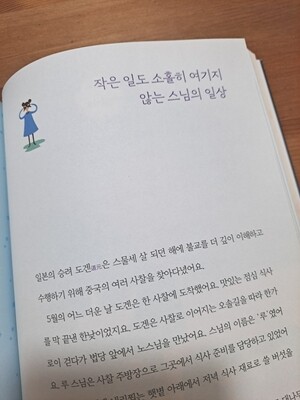 작은 일도 소홀히 여기지
않는 스님의 일상
일본의 승려 도겐道元은 스물세 살 되던 해에 불교를 더 깊이 이해하고
수행하기 위해 중국의 여러 사찰을 찾아다녔어요.
5월의 어느 더운 날 도겐은 한 사찰에 도착했어요. 맛있는 점심 식사
를 막 끝낸 한낮이었지요. 도겐은 사찰로 이어지는 오솔길을 따라 한가
로이 걷다가 법당 앞에서 노스님을 만났어요. 스님의 이름은 '루'였어
요. 루 스님은 사찰 주방장으로 그곳에서 식사 준비를 담당하고 있었어
햇볕 아래에서 저녁 식사 재료로 쓸 버섯을